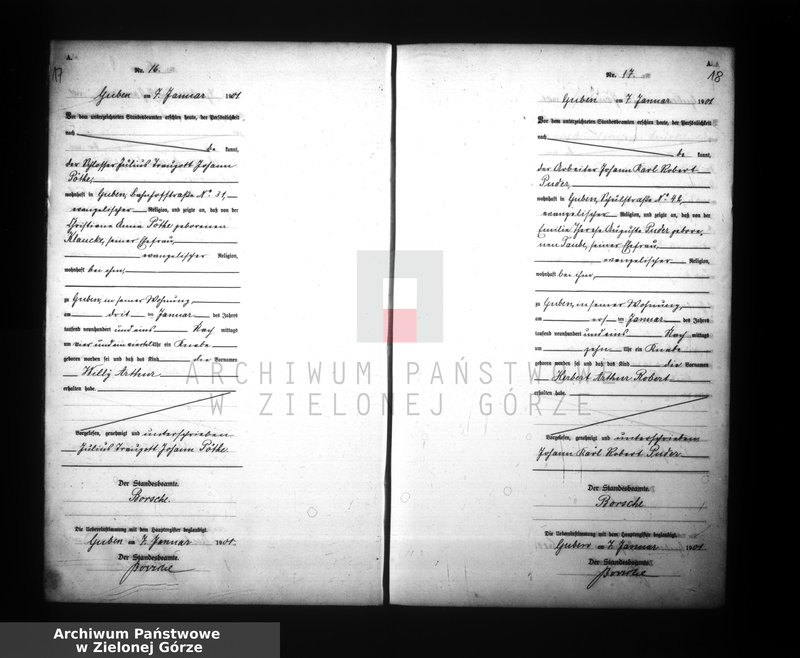 A.
17
Nr. 16.
Guben am 7. Januar 1901
Vor dem unterzeichneten Standesbeamten erschien heute, der Persönlichkeit
nach
be kannt,
der Schlosser Julius Traugott Johann
Pötke,
wohnhaft in Guben, Bahnhofstraße No. 31,
evangelischer Religion, und zeigte an, daß von der
Christiane Anna Pötke geborenen
seiner Ehefrau,
evangelischer Religion,
wohnhaft bei ihm,
zu Guben, in seiner Wohnung,
am drit ten Januar des Jahres
tausend neunhundert und eins Nach mittags
um vier und ein viertel Uhr ein Knabe
geboren worden sei und daß das Kind die Vornamen
Willy Arthur
erhalten habe.
Vorgelesen, genehmigt und unterschrieben
Julius Traugott Johann Pötke.
Der Standesbeamte.
Borsche.
Die Uebereinstimmung mit dem Hauptregister beglaubigt.
Guben am 7. Januar 1901.
Der Standesbeamte.
Borsche
A.
18
Nr. 17.
Guben am 7. Januar 1901
Vor dem unterzeichneten Standesbeamten erschien heute, der Persönlichkeit
nach
be kannt,
der Arbeiter Johann Karl Robert
Puder,
wohnhaft in Guben, Schulstraße No. 42,
evangelischer Religion, und zeigte an, daß von der
Emilie Therese Auguste Puder, gebore,
nen Taube, seiner Ehefrau,
evangelischer Religion,
wohnhaft bei ihm,
zu Guben, in seiner Wohnung,
am ers ten Januar des Jahres
tausend neunhundert und eins Nach mittags
um zehn Uhr ein Knabe
geboren worden sei und daß das Kind die Vornamen
Herbert Arthur Robert
erhalten habe.
Vorgelesen, genehmigt und unterschrieben
Johann Karl Robert Puder.
Der Standesbeamte.
Borsche
Die Uebereinstimmung mit dem Hauptregister beglaubigt.
Guben am 7. Januar 1901.
Der Standesbeamte.
Borsche
ARCHIWUM PAŃSTWOWE
W ZIELONEJ GÓRZE
Archiwum Państwowe
w Zielonej Górze